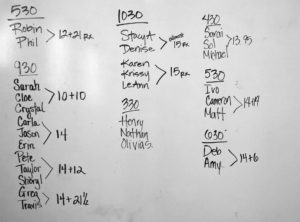 530
Robin
Phil
12+21 Rx
930
Sarah
Cloe
Crystal
10+10
Carla
Jason
Erin
14
Pete
Taylor
Sheryl
14+12
Greg
Travis
14+21½
1030
Stacy A
Denise
15 Rx
Karen
Krissy
LeAnn
15 Rx
330
Henry
Nathan
Olivias
430
Sarai
Sol
Michael
13.95
530
Ivo
Cameron
Matt
14+14
630
Deb
Amy
14+6